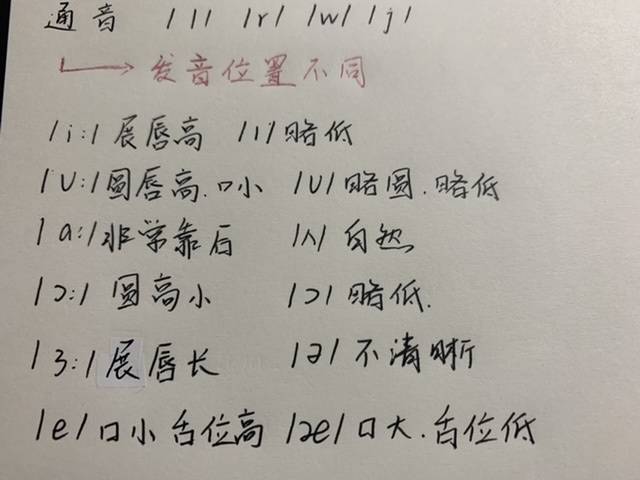 通音 /l/ /r/ /w/ /j/
↳ 发音位置不同
/i:/ 展唇高 /ɪ/ 略低
/u:/ 圆唇高.口小 /ʊ/ 略圆.略低
/ɑ:/ 非学靠后 /ʌ/ 自然
/ɔ:/ 圆高小 /ɔ/ 略低.
/ɜ:/ 展唇长 /ə/ 不清晰
/e/ 口小舌位高 /æ/ 口大.舌位低